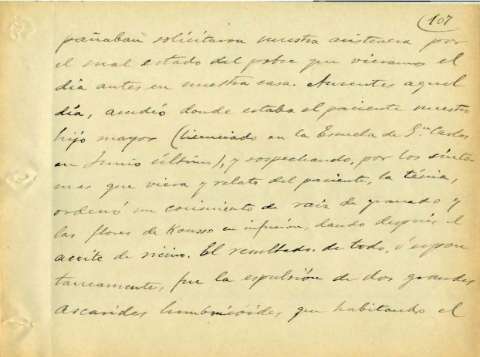 107
pañaban solicitaron nuestra asistencia por
el mal estado del pobre que vieramos el
día antes en nuestra casa. Ausentes aquel
día, acudió donde estaba el paciente nuestro
hijo mayor (licenciado en la Escuela de Sn. Carlos
en Junio último), y sospechando, por los sínto
mas que viera y relato del paciente, la ténia,
ordenó un cocimiento de raiz de granado y
las flores de Kousso en infusión, dando después el
aceite de ricino. El resultado de todo, ó espon
taneamente, fue la expulsión de dos grandes
Ascarides lumbricóides, que habitando el